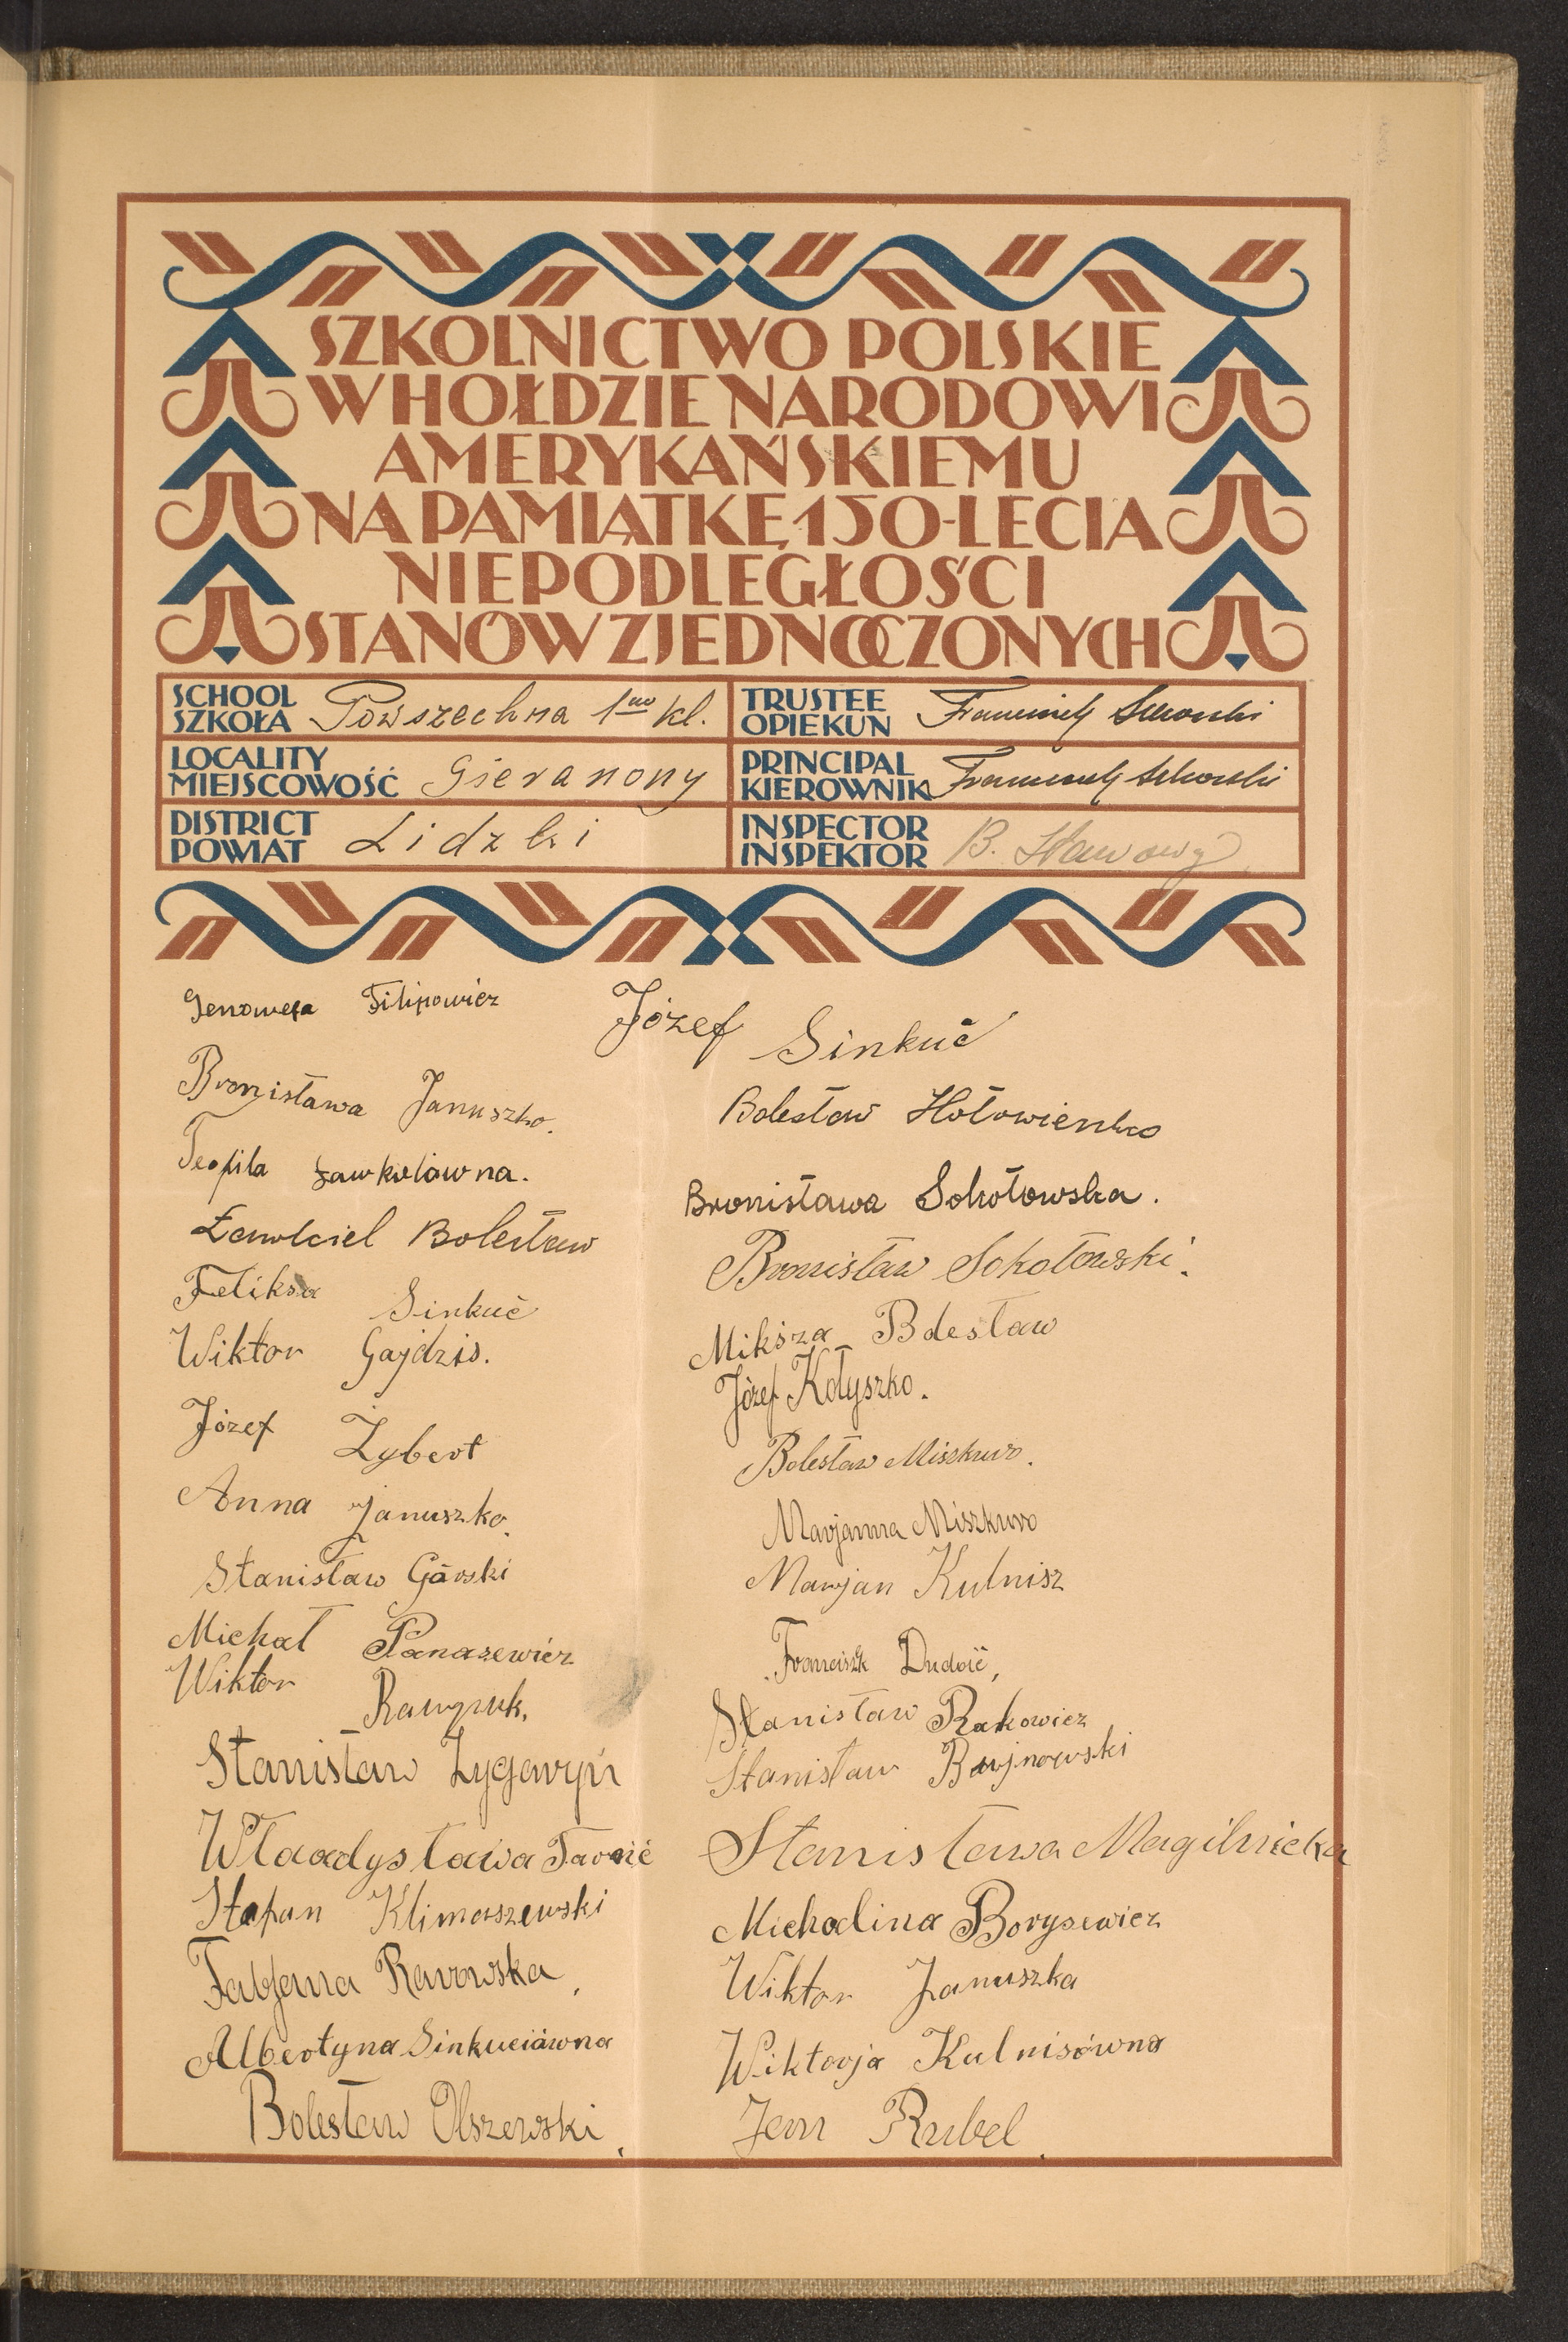 SZKOLNICTWO POLSKIE
W HOŁDZIE NARODOWI
AMERYKAŃSKIEMU
NA PAMIĄTKĘ 150-LECIA
NIEPODLEGŁOŚCI
STANÓW ZJEDNOCZONYCH
SCHOOL
SZKOŁA Powszechna 1no kl.
LOCALITY
MIEJSCOWOŚĆ Gieranony
DISTRICT
POWIAT Lidzki
TRUSTEE
OPIEKUN
PRINCIPAL
KIEROWNIK
INSPECTOR
INSPEKTOR B.
Genowefa Filipowicz
Bronisława Januszko.
Teofila Ławkielówna.
Ławkiel Bolesław
Feliksa Sinkuć
Wiktor Gajdzis.
Józef Żybert
Anna Januszko.
Stanisław Górski
Michał Panasewicz
Wiktor
Stanisław
Władysława
Stefan Klimaszewski
Fabjana Rawowska.
Albertyna Sinkuciówna
Bolesław Olszewski.
Józef Sinkuć
Bolesław Hołowienko
Bronisława Sokołowska.
Bronisław Sokołowski.
Miksza Bolesław
Józef Kołyszko.
Bolesław Miszkuro.
Marjanna Miszkuro
Marjan Kulnisz
Franciszk
Stanisław Rakowicz
Stanisław Bujnowski
Stanisława Magilnicka
Michalina Borysewicz
Wiktor Januszka
Wiktorja Kulnisówna
Jan Rubel.